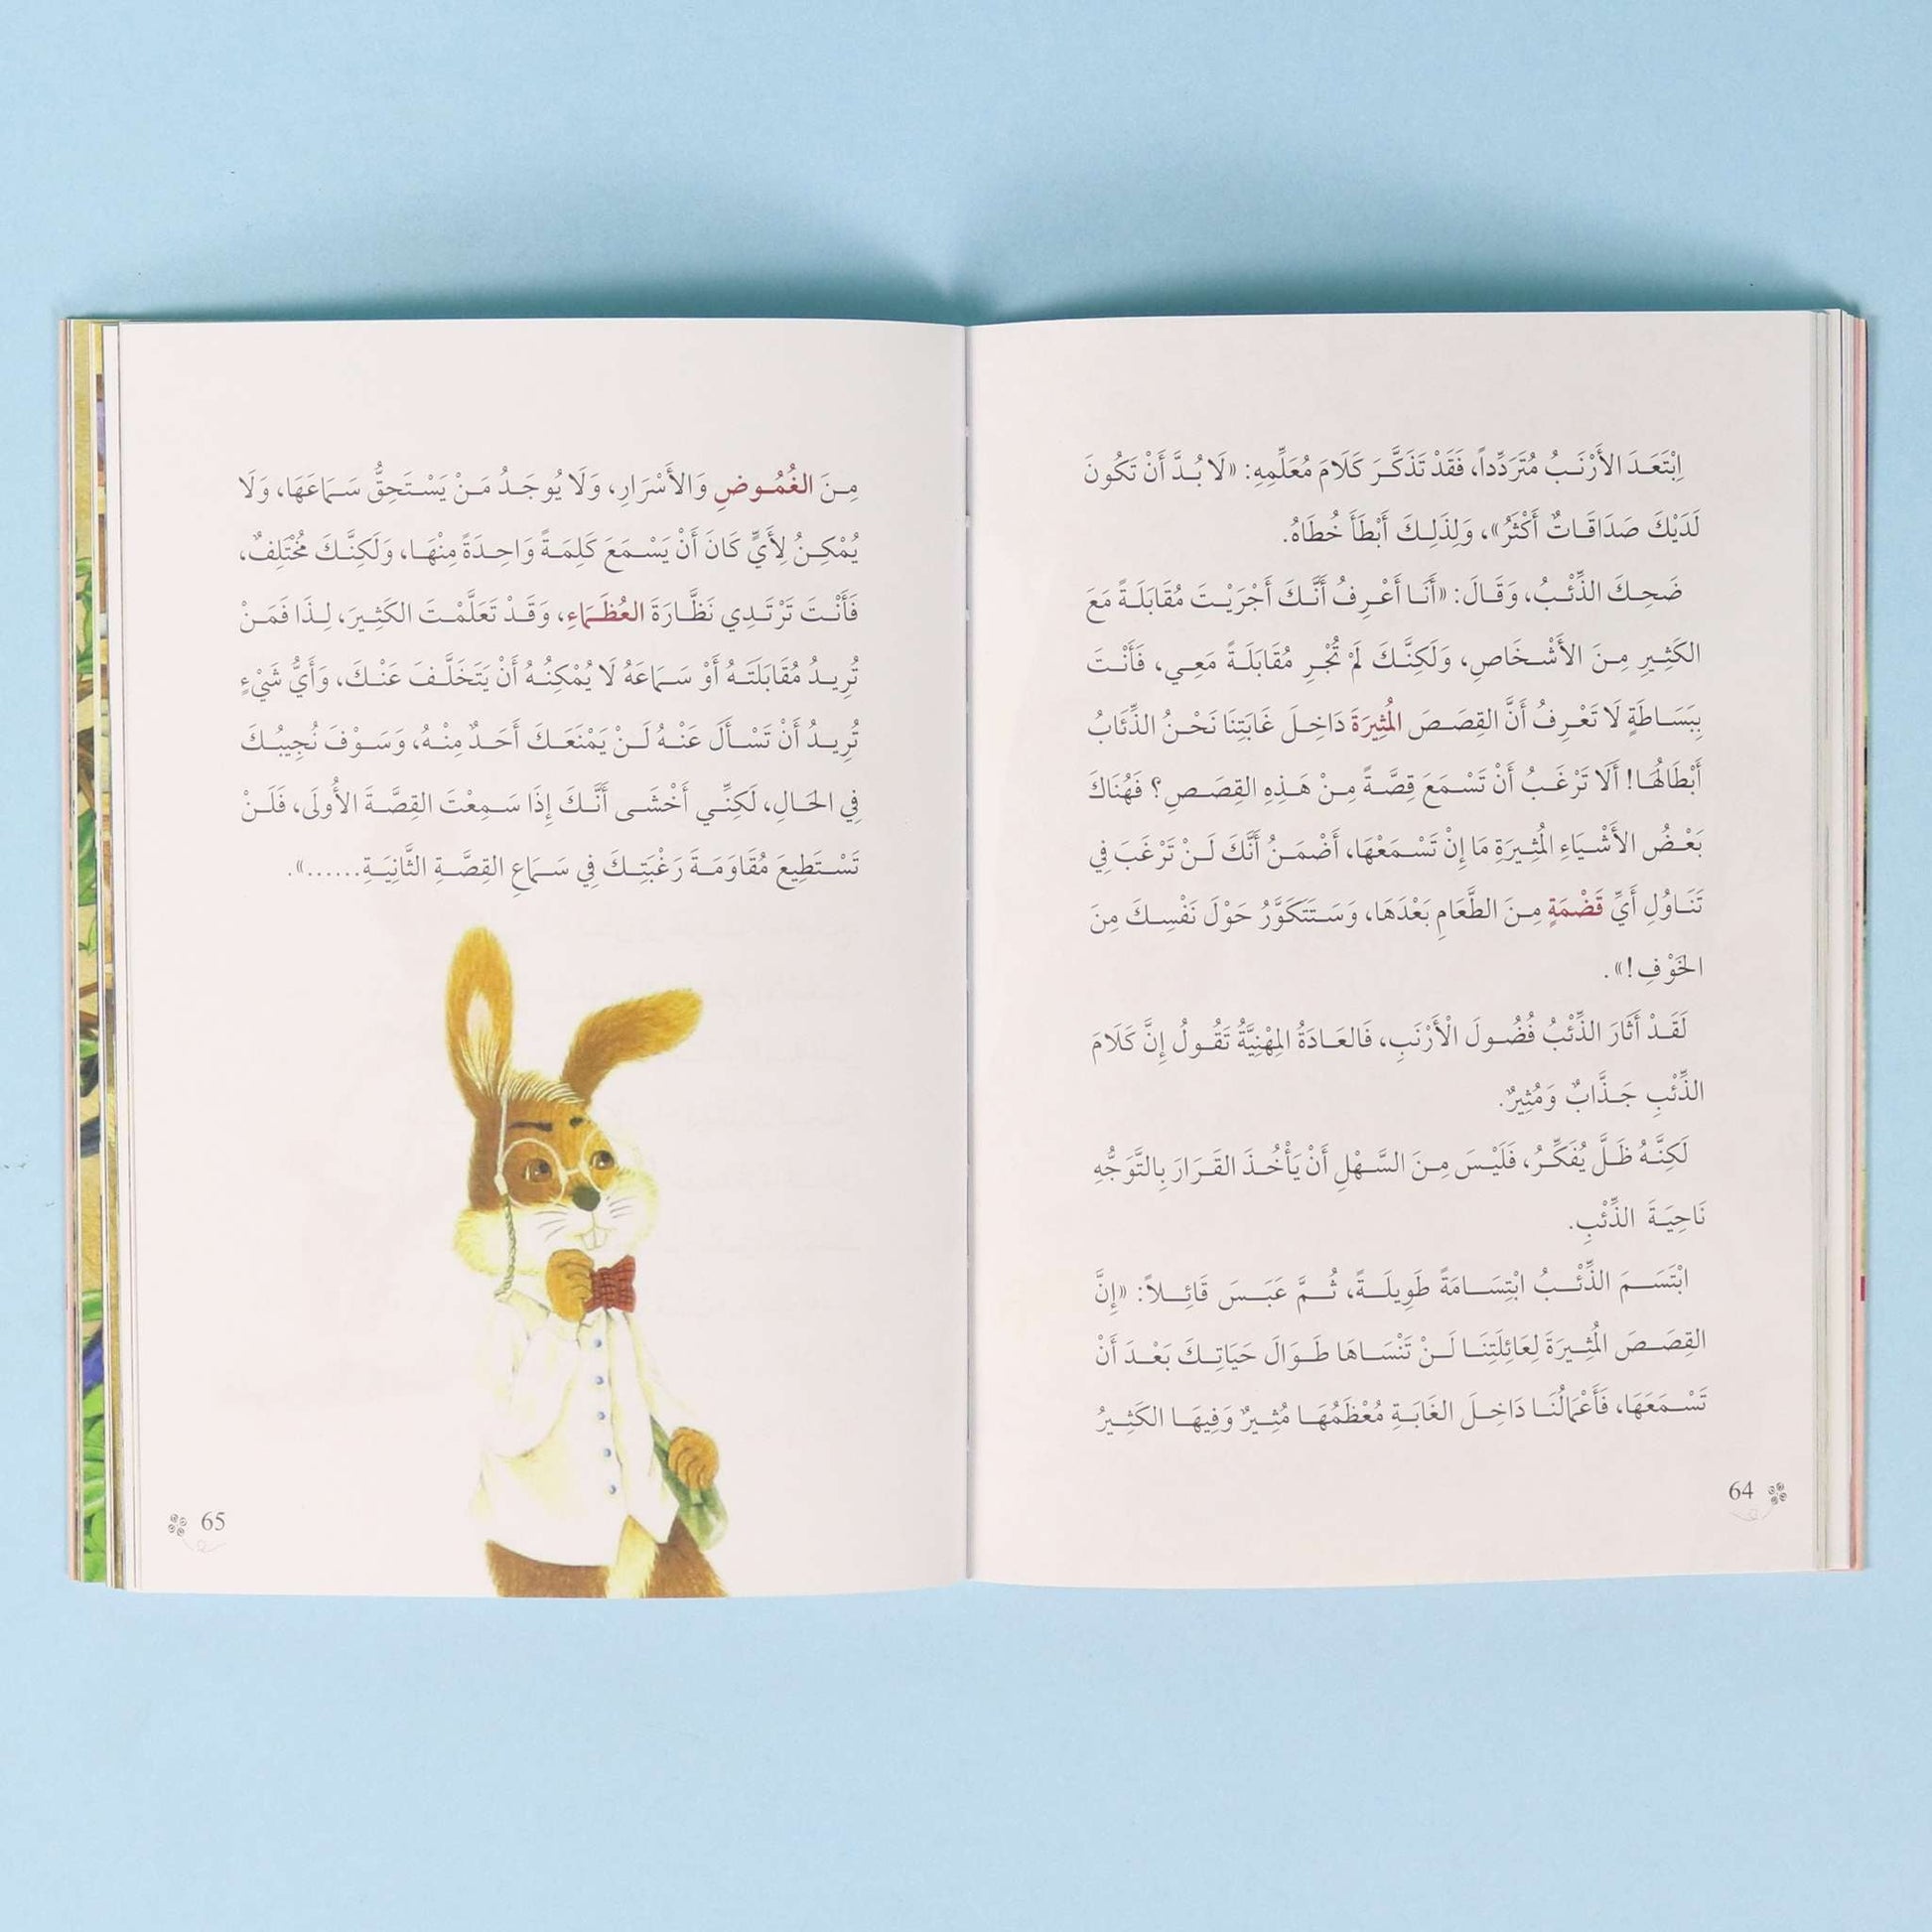 اِبْتَعَدَ الأَرْنَبُ مُتَرَدِّداً، فَقَدْ تَذَكَّرَ كَلَامَ مُعَلِّمِهِ: «لَا بُدَّ أَنْ تَكُونَ
لَدَيْكَ صَدَاقَاتٌ أَكْثَرُ»، وَلِذَلِكَ أَبْطَأَ خُطَاهُ.
ضَحِكَ الذِّئْبُ، وَقَالَ: «أَنَا أَعْرِفُ أَنَّكَ أَجْرَيْتَ مُقَابَلَةً مَعَ
الكَثِيرِ مِنَ الأَشْخَاصِ، وَلَكِنَّكَ لَمْ تُجْرِ مُقَابَلَةً مَعِي، فَأَنْتَ
بِبَسَاطَةٍ لَا تَعْرِفُ أَنَّ القِصَصَ المُثِيرَةَ دَاخِلَ غَابَتِنَا نَحْنُ الذِّئَابُ
أَبْطَالُهَا! أَلَا تَرْغَبُ أَنْ تَسْمَعَ قِصَّةً مِنْ هَذِهِ القِصَصِ؟ فَهُنَاكَ
بَعْضُ الأَشْيَاءِ المُثِيرَةِ مَا إِنْ تَسْمَعْهَا، أَضْمَنُ أَنَّكَ لَنْ تَرْغَبَ فِي
تَنَاوُلِ أَيِّ قَضْمَةٍ مِنَ الطَّعَامِ بَعْدَهَا، وَسَتَتَكَوَّرُ حَوْلَ نَفْسِكَ مِنَ
الخَوْفِ!».
لَقَدْ أَثَارَ الذِّئْبُ فُضُولَ الْأَرْنَبِ، فَالعَادَةُ المِهْنِيَّةُ تَقُولُ إِنَّ كَلَامَ
الذِّئْبِ جَذَّابٌ وَمُثِيرٌ.
لَكِنَّهُ ظَلَّ يُفَكِّرُ، فَلَيْسَ مِنَ السَّهْلِ أَنْ يَأْخُذَ القَرَارَ بِالتَّوَجُّهِ
نَاحِيَةَ الذِّئْبِ.
ابْتَسَمَ الذِّئْبُ ابْتِسَامَةً طَوِيلَةً، ثُمَّ عَبَسَ قَائِلاً: «إِنَّ
القِصَصَ المُثِيرَةَ لِعَائِلَتِنَا لَنْ تَنْسَاهَا طَوَالَ حَيَاتِكَ بَعْدَ أَنْ
تَسْمَعَهَا، فَأَعْمَالُنَا دَاخِلَ الغَابَةِ مُعْظَمُهَا مُثِيرٌ وَفِيهَا الكَثِيرُ
64
مِنَ الغُمُوضِ وَالأَسْرَارِ، وَلَا يُوجَدُ مَنْ يَسْتَحِقُّ سَمَاعَهَا، وَلَا
يُمْكِنُ لِأَيٍّ كَانَ أَنْ يَسْمَعَ كَلِمَةً وَاحِدَةً مِنْهَا، وَلَكِنَّكَ مُخْتَلِفٌ،
فَأَنْتَ تَرْتَدِي نَظَّارَةَ العُظَمَاءِ، وَقَدْ تَعَلَّمْتَ الكَثِيرَ، لِذَا فَمَنْ
تُرِيدُ مُقَابَلَتَهُ أَوْ سَمَاعَهُ لَا يُمْكِنُهُ أَنْ يَتَخَلَّفَ عَنْكَ، وَأَيُّ شَيْءٍ
تُرِيدُ أَنْ تَسْأَلَ عَنْهُ لَنْ يَمْنَعَكَ أَحَدٌ مِنْهُ، وَسَوْفَ نُجِيبُكَ
فِي الحَالِ، لَكِنِّي أَخْشَى أَنَّكَ إِذَا سَمِعْتَ القِصَّةَ الأُولَى، فَلَنْ
تَسْتَطِيعَ مُقَاوَمَةَ رَغْبَتِكَ فِي سَمَاعِ القِصَّةِ الثَّانِيَةِ......».
65